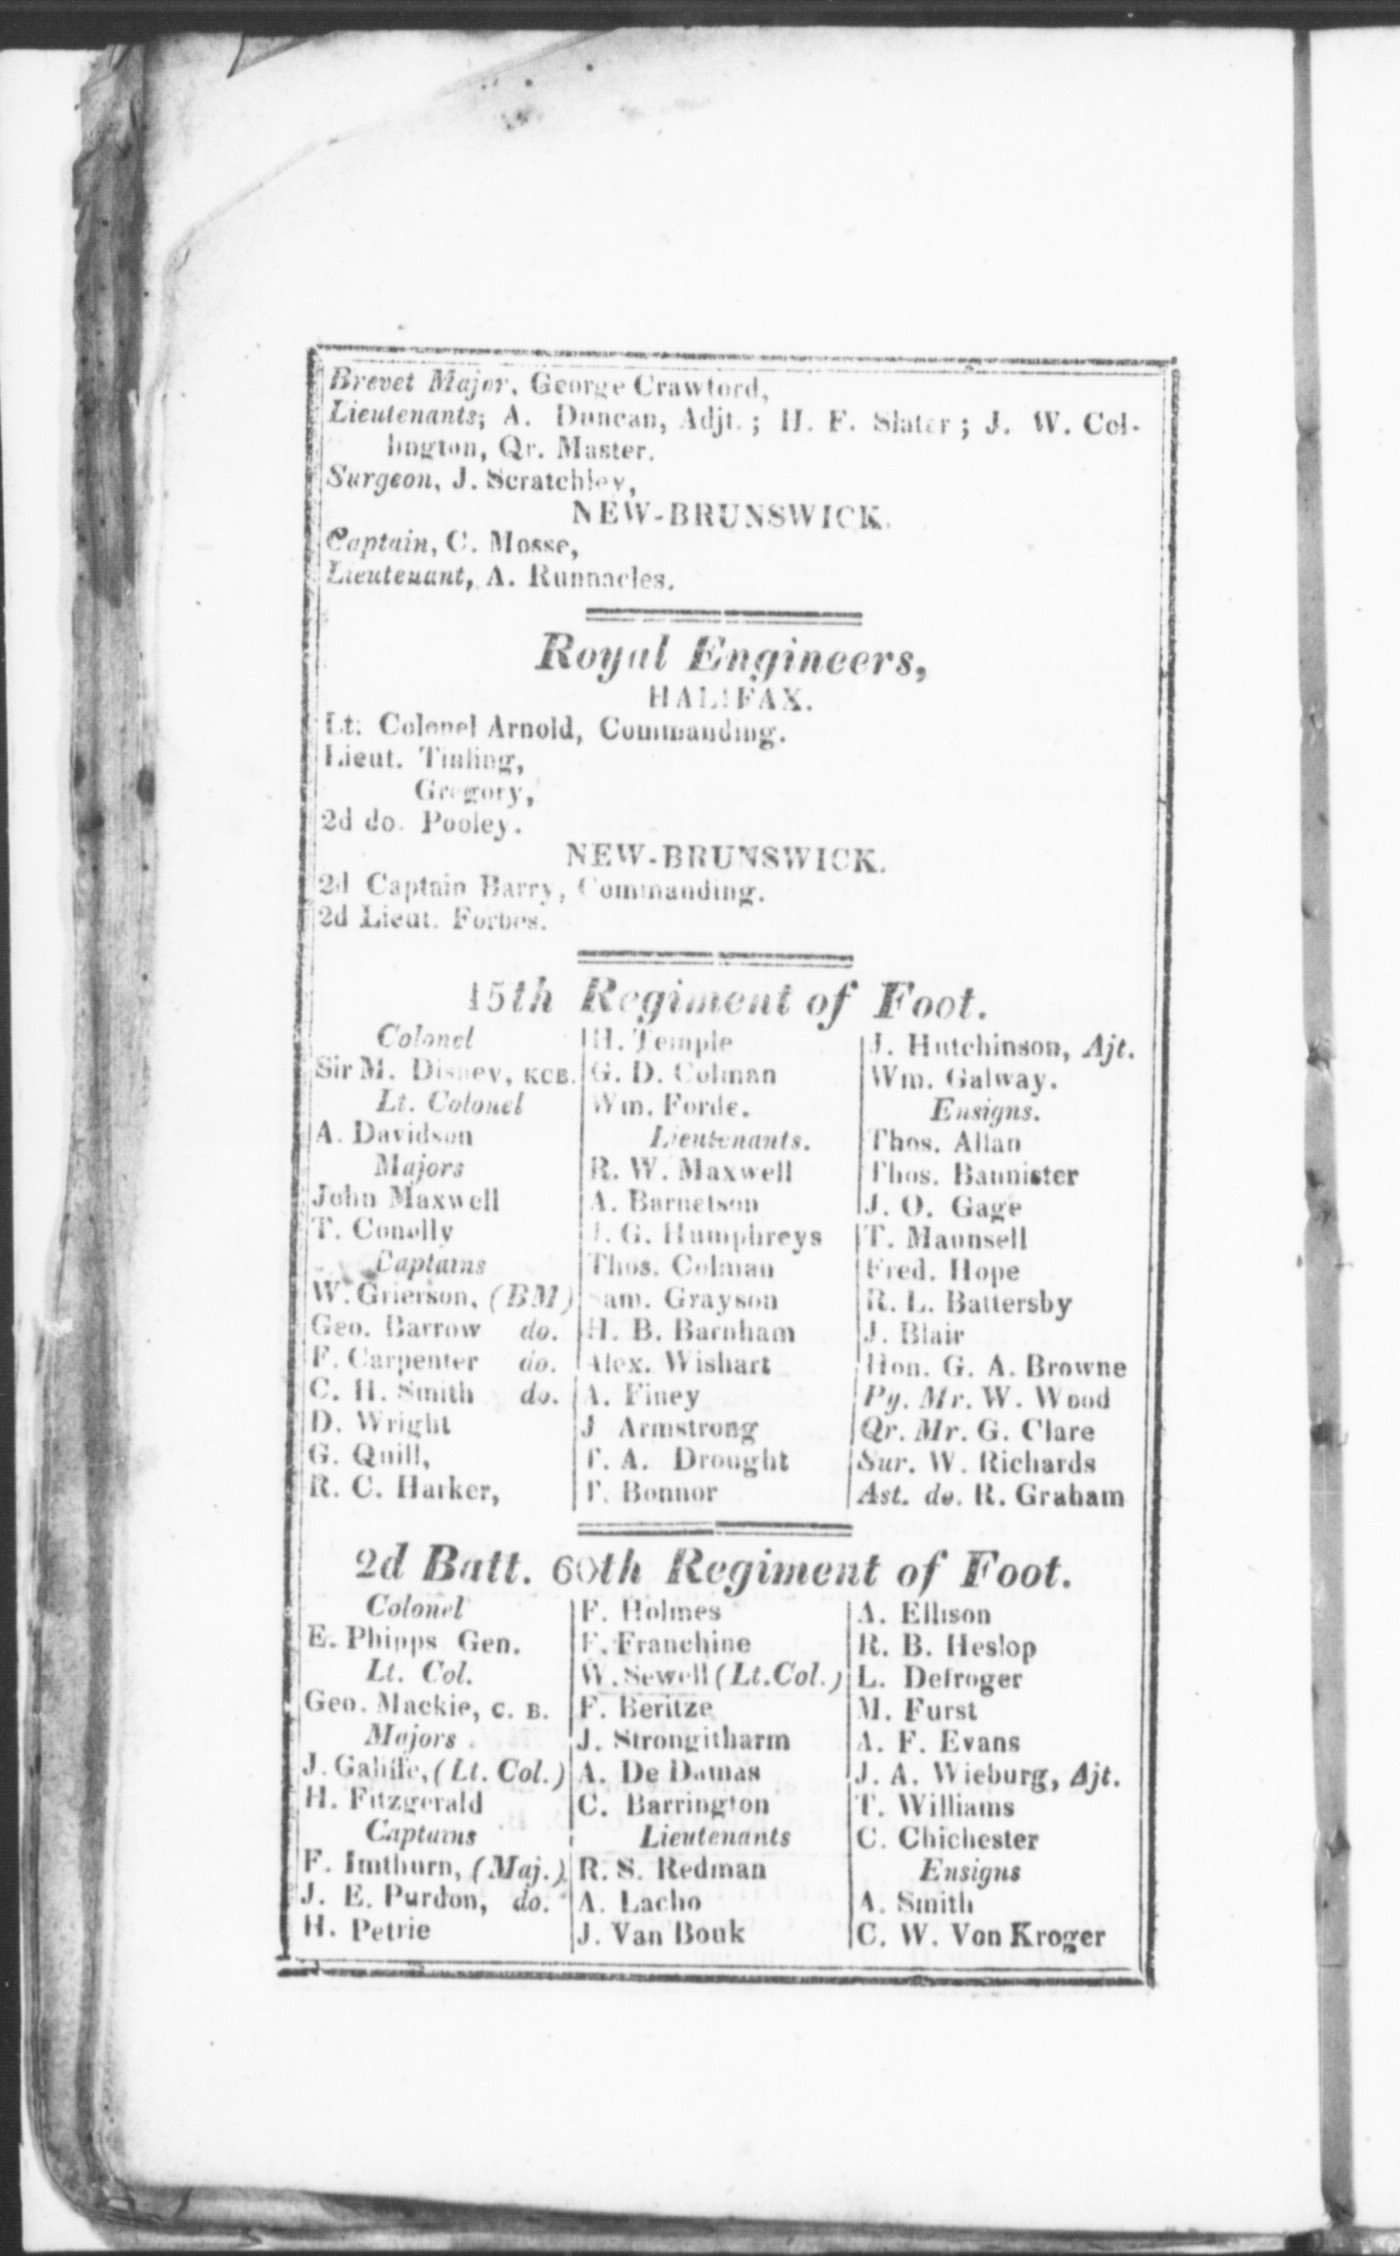 Brevet Major, George Crawford,
Lieutenants; A. Duncan, Adjt.; H. F. Slater; J. W. Col-
lington, Qr. Master.
Surgeon, J. Scratchley,
NEW-BRUNSWICK.
Captain, C. Mosse,
Lieutenant, A. Runnacles.
Royal Engineers,
HALIFAX.
Lt. Colonel Arnold, Commanding.
Lieut. Tinling,
Gregory,
2d do. Pooley.
NEW-BRUNSWICK.
2d Captain Barry, Commanding.
2d Lieut. Forbes.
15th Regiment of Foot.
Colonel
Sir M. Disney, KCB.
Lt. Colonel
A. Davidson
Majors
John Maxwell
T. Conolly
Captains
W. Grierson, (BM)
Geo. Barrow do.
F. Carpenter do.
C. H. Smith do.
D. Wright
G. Quill,
R. C. Harker,
H. Temple
G. D. Colman
Wm. Forde.
Lieutenants.
R. W. Maxwell
A. Barnetson
J. G. Humphreys
Thos. Colman
Sam. Grayson
H. B. Barnham
Alex. Wishart
A. Finey
J Armstrong
T. A. Drought
T. Bonnor
J. Hutchinson, Ajt.
Wm. Galway.
Ensigns.
Thos. Allan
Thos. Bannister
J. O. Gage
T. Maunsell
Fred. Hope
R. L. Battersby
J. Blair
Hon. G. A. Browne
Py. Mr. W. Wood
Qr. Mr. G. Clare
Sur. W. Richards
Ast. do. R. Graham
2d Batt. 60th Regiment of Foot.
Colonel
E. Phipps Gen.
Lt. Col.
Geo. Mackie, C. B.
Majors
J. Galiffe, (Lt. Col.)
H. Fitzgerald
Captains
F. Imthurn, (Maj.)
J. E. Purdon, do.
H. Petrie
F. Holmes
F. Franchine
W. Sewell (Lt. Col.)
F. Beritze
J. Strongitharm
A. De Damas
C. Barrington
Lieutenants
R. S. Redman
A. Lacho
J. Van Bouk
A. Ellison
R. B. Heslop
L. Defroger
M. Furst
A. F. Evans
J. A. Wieburg, Ajt.
T. Williams
C. Chichester
Ensigns
A. Smith
C. W. Von Kroger